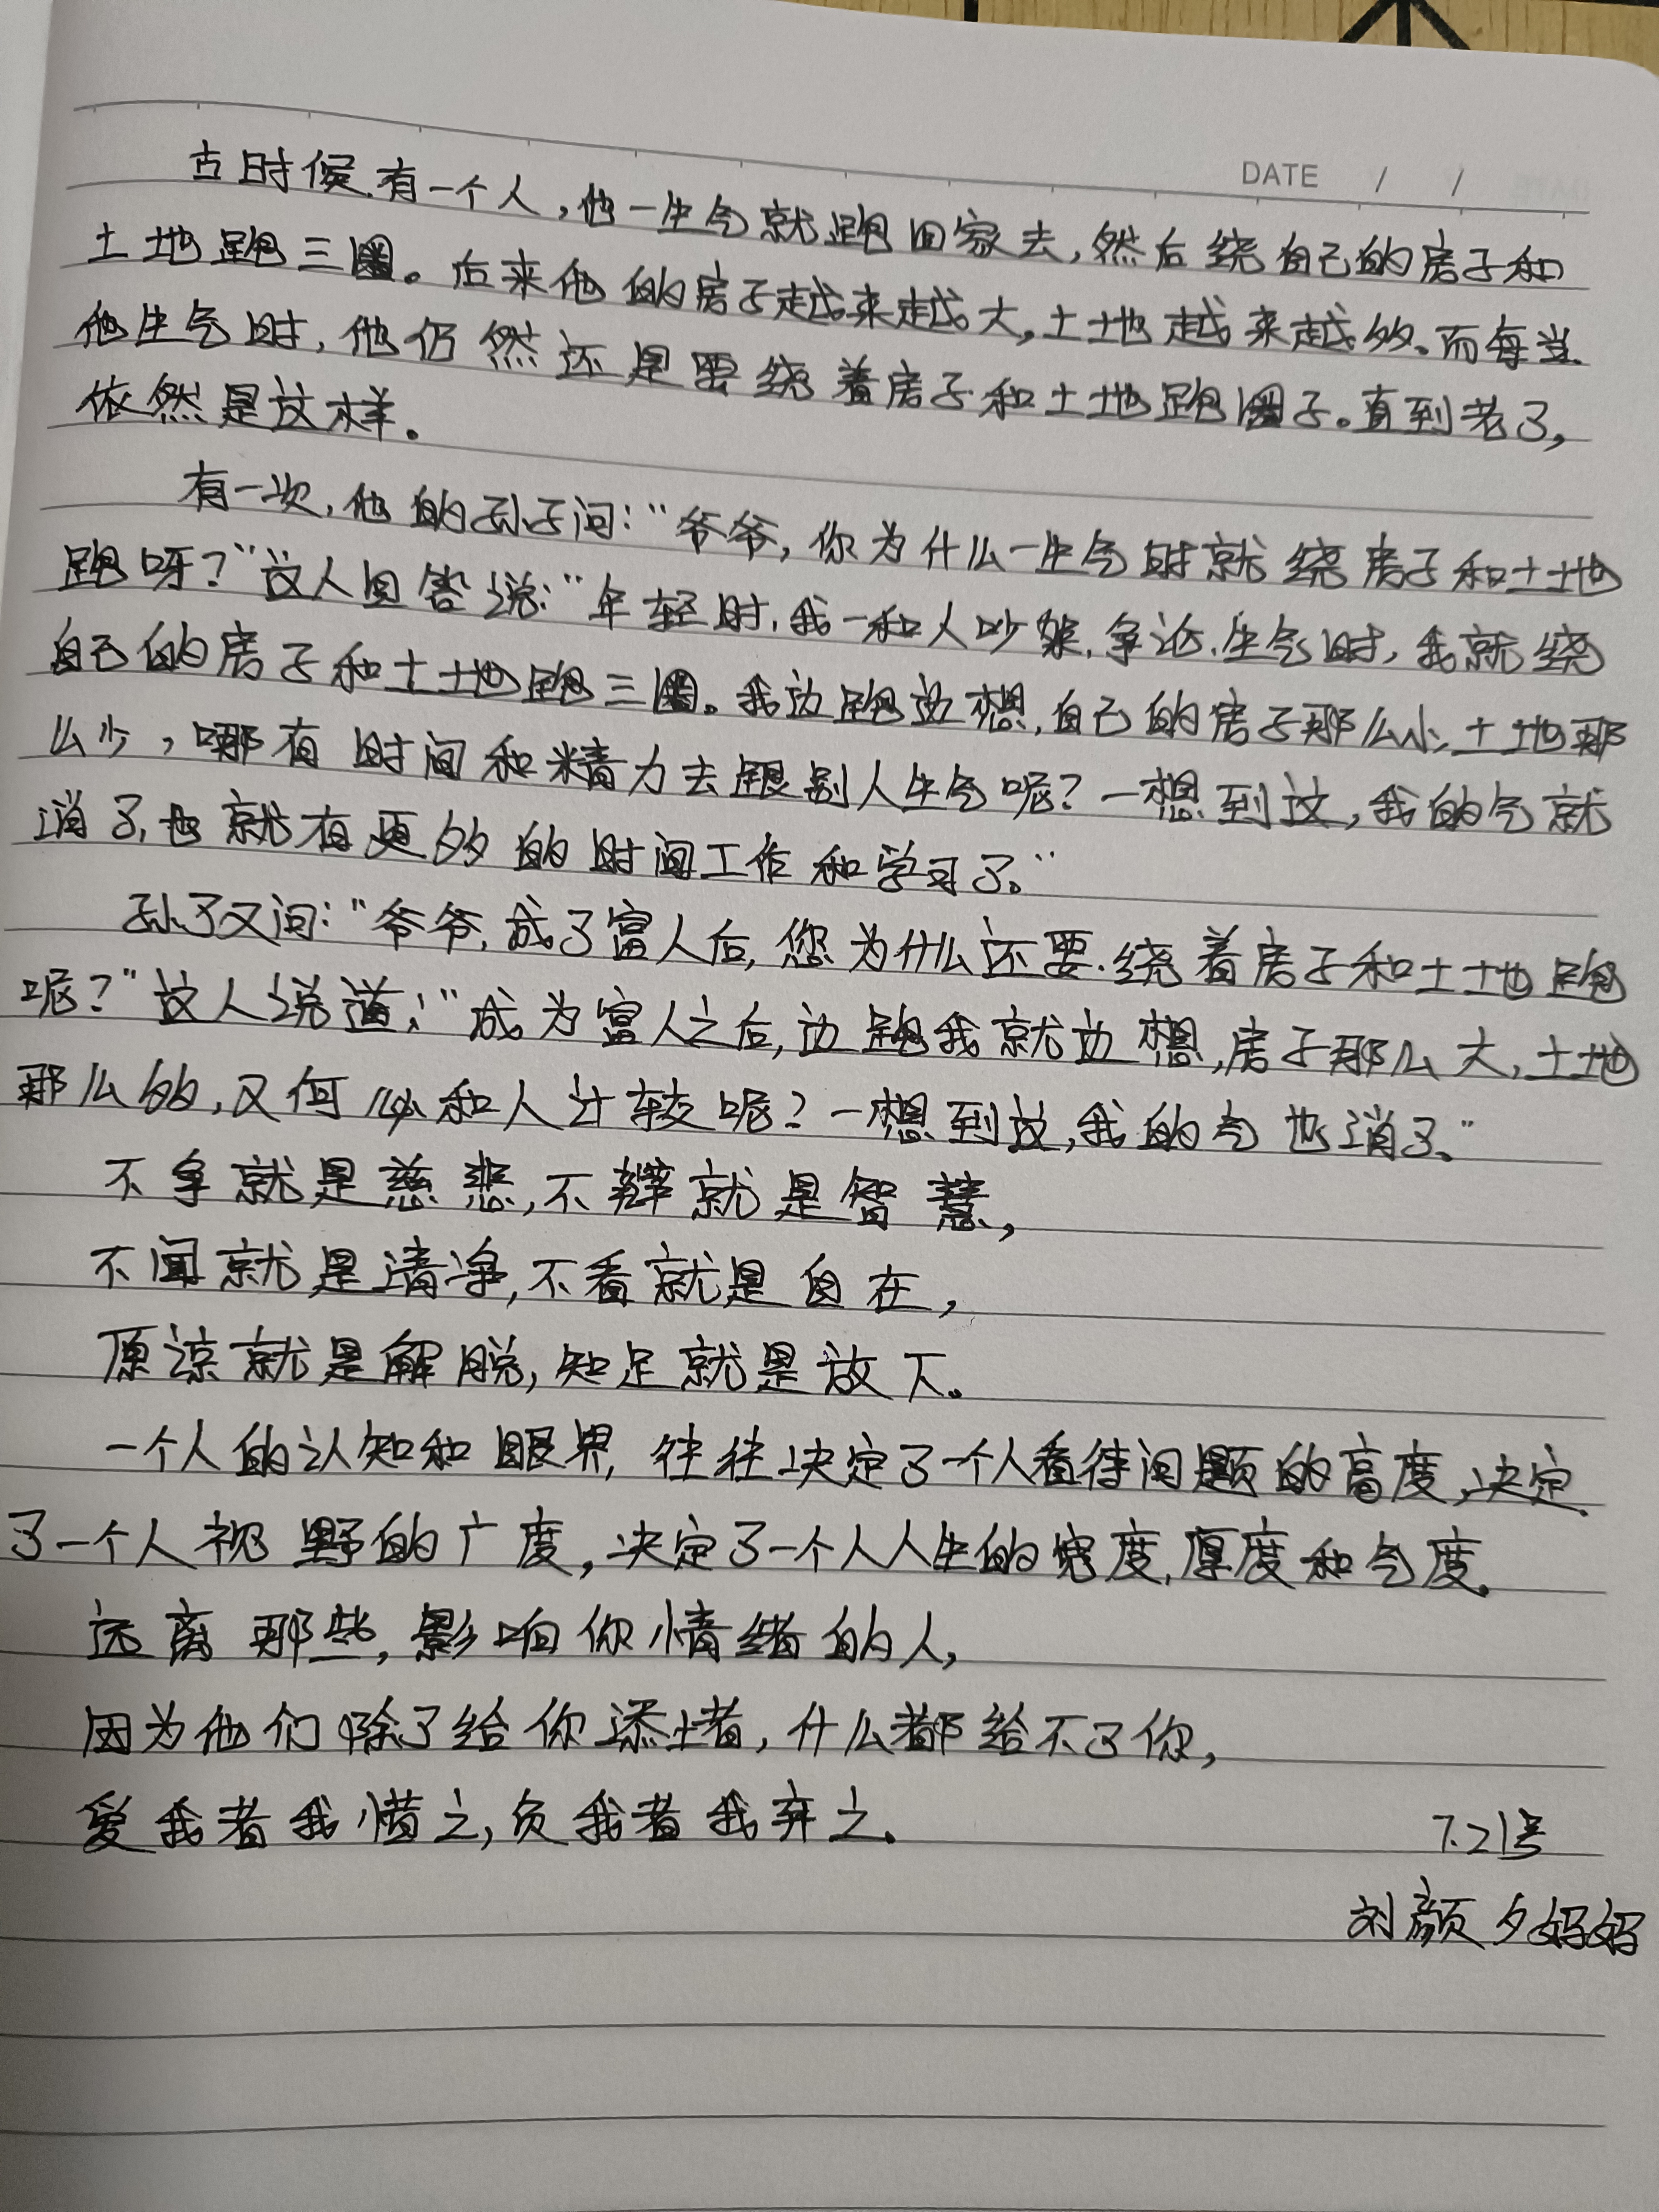 DATE / /
古时候.有一个人,他一生气就跑回家去,然后绕自己的房子和
土地跑三圈。后来他的房子越来越大,土地越来越多。而每当
他生气时,他仍然还是要绕着房子和土地跑圈子。直到老了,
依然是这样。
有一次,他的孙子问:“爷爷,你为什么一生气时就绕房子和土地
跑呀?”故人回答说:“年轻时,我一和人吵架.争论.生气时,我就绕
自己的房子和土地跑三圈。我边跑边想,自己的房子那么小,土地那
么少,哪有时间和精力去跟别人生气呢?一想到这,我的气就
消了,也就有更多的时间工作和学习了。”
孙子又问:“爷爷,成了富人后,您为什么还要.绕着房子和土地跑
呢?”故人说道:“成为富人之后,边跑我就边想,房子那么大,土地
那么多,又何必和人计较呢?一想到这,我的气也消了。”
不争就是慈悲,不辩就是智慧,
不闻就是清净,不看就是自在,
原谅就是解脱,知足就是放下。
一个人的认知和眼界,往往决定了一个人看待问题的高度,决定
了一个人视野的广度,决定了一个人人生的宽度,厚度和气度。
远离那些,影响你情绪的人,
因为他们除了给你添堵,什么都给不了你,
爱我者我惜之,负我者我弃之。
7.21号
刘颜夕妈妈